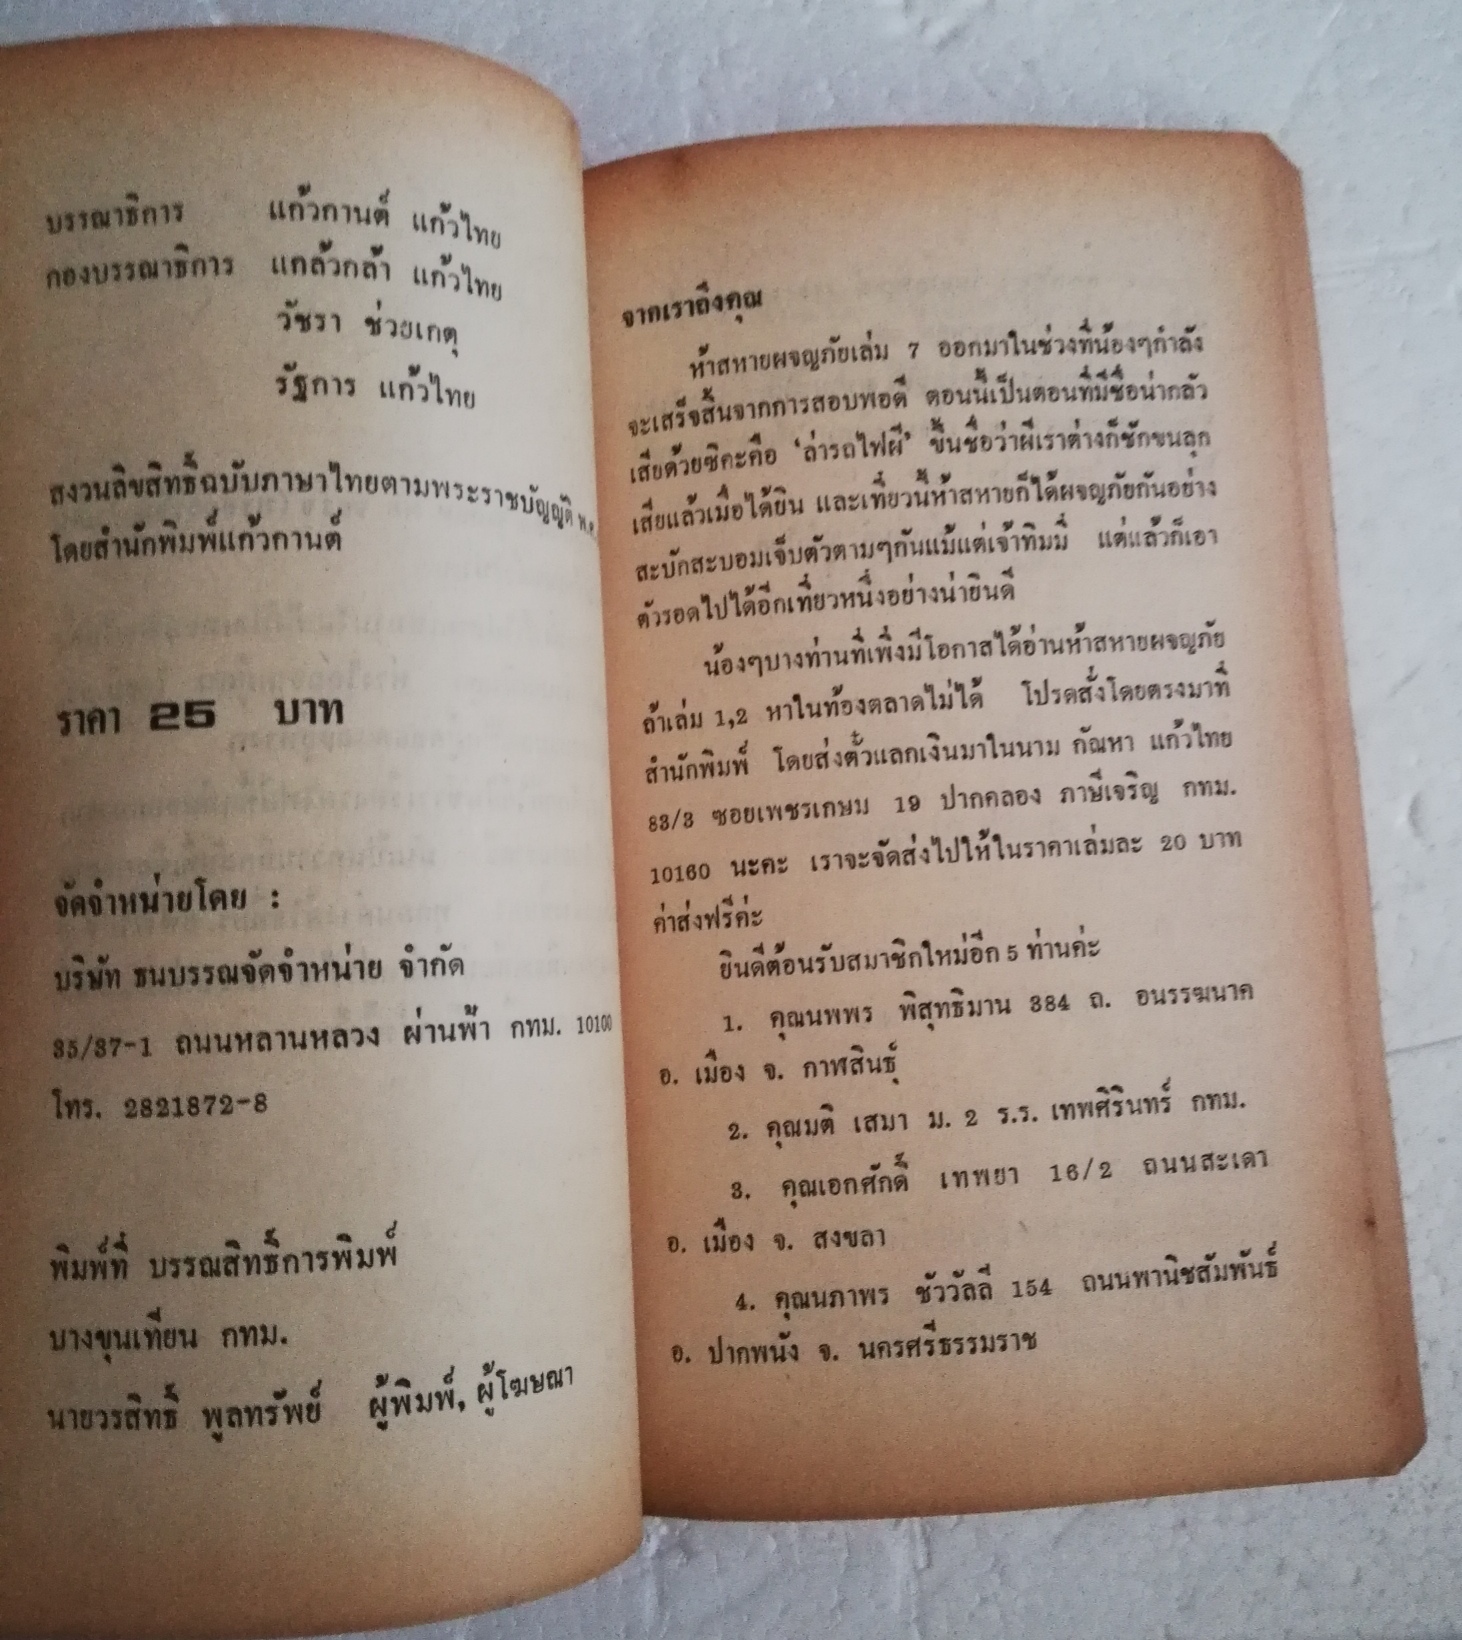 บรรณาธิการ แก้วกานต์ แก้วไทย
กองบรรณาธิการ แกล้วกล้า แก้วไทย
วัชรา ช่วยเกตุ
รัฐการ แก้วไทย
สงวนลิขสิทธิ์ฉบับภาษาไทยตามพระราชบัญญัติ
โดยสำนักพิมพ์แก้วกานต์
ราคา 25 บาท
จัดจำหน่ายโดย :
บริษัท ธนบรรณจัดจำหน่าย จำกัด
35/37-1 ถนนหลานหลวง ผ่านฟ้า กทม. 10100
โทร. 2821872-8
พิมพ์ที่ บรรณสิทธิ์การพิมพ์
บางขุนเทียน กทม.
นายวรสิทธิ์ พูลทรัพย์ ผู้พิมพ์, ผู้โฆษณา
จากเราถึงคุณ
ห้าสหายผจญภัยเล่ม 7 ออกมาในช่วงที่น้องๆกำลัง
จะเสร็จสิ้นจากการสอบพอดี ตอนนี้เป็นตอนที่มีชื่อน่ากลัว
เสียด้วยซิคะคือ 'ล่ารถไฟผี' ขึ้นชื่อว่าผีเราต่างก็ชักขนลุก
เสียแล้วเมื่อได้ยิน และเที่ยวนี้ห้าสหายก็ได้ผจญภัยกันอย่าง
สะบักสะบอมเจ็บตัวตามๆกันแม้แต่เจ้าทิมมี่ แต่แล้วก็เอา
ตัวรอดไปได้อีกเที่ยวหนึ่งอย่างน่ายินดี
น้องๆบางท่านที่เพิ่งมีโอกาสได้อ่านห้าสหายผจญภัย
ถ้าเล่ม 1,2 หาในท้องตลาดไม่ได้ โปรดสั่งโดยตรงมาที่
สำนักพิมพ์ โดยส่งตั๋วแลกเงินมาในนาม กัณหา แก้วไทย
83/3 ซอยเพชรเกษม 19 ปากคลอง ภาษีเจริญ กทม.
10160 นะคะ เราจะจัดส่งไปให้ในราคาเล่มละ 20 บาท
ค่าส่งฟรีค่ะ
ยินดีต้อนรับสมาชิกใหม่อีก 5 ท่านค่ะ
1. คุณนพพร พิสุทธิมาน 384 ถ. อนรรฆนาค
อ. เมือง จ. กาฬสินธุ์
2. คุณมติ เสมา ม. 2 ร.ร. เทพศิรินทร์ กทม.
3. คุณเอกศักดิ์ เทพยา 16/2 ถนนสะเดา
อ. เมือง จ. สงขลา
4. คุณนภาพร ชัววัลลี 154 ถนนพานิชสัมพันธ์
อ. ปากพนัง จ. นครศรีธรรมราช